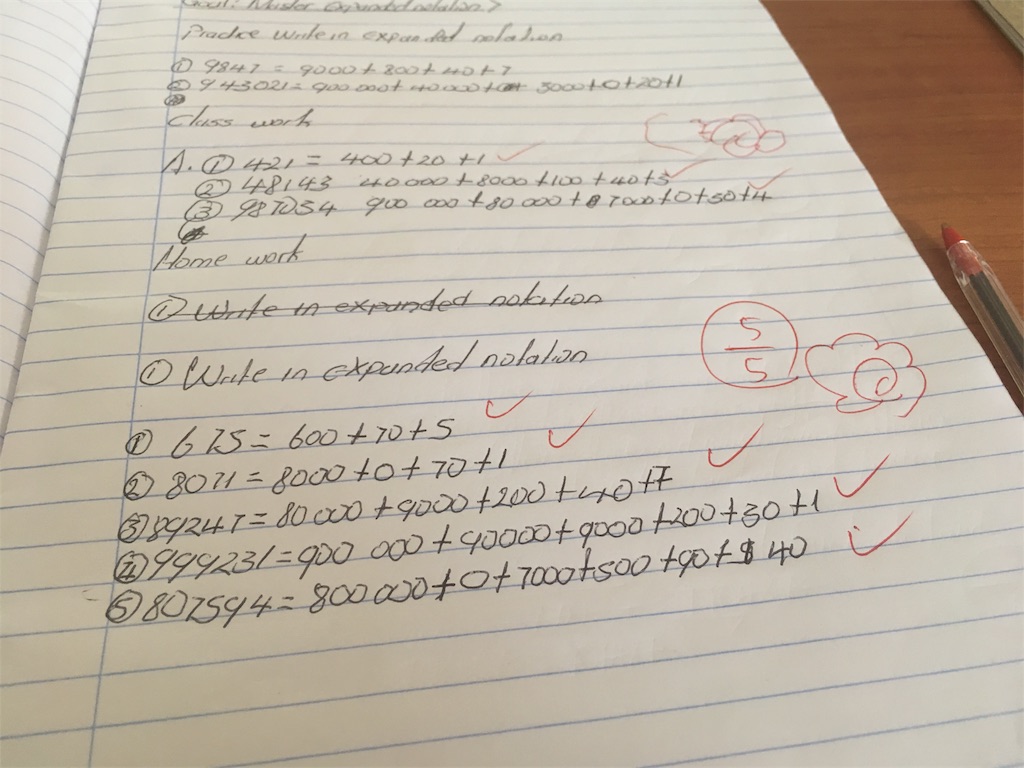 Goal: Master expanded notation
Practice Write in expanded notation
① 9847 = 9000 + 800 + 40 + 7
② 943021 = 900 000 + 40000 + 3000 + 0 + 20 + 1
Class work
A. ① 421 = 400 + 20 + 1
② 48143 40 000 + 8000 + 100 + 40 + 3
③ 987054 900 000 + 80 000 + 7000 + 0 + 50 + 4
Home work
① Write in expanded notation
① Write in expanded notation
5/5
① 675 = 600 + 70 + 5
② 8071 = 8000 + 0 + 70 + 1
③ 89247 = 80 000 + 9000 + 200 + 40 + 7
④ 999231 = 900 000 + 90000 + 9000 + 200 + 30 + 1
⑤ 807594 = 800 000 + 0 + 7000 + 500 + 90 + 40